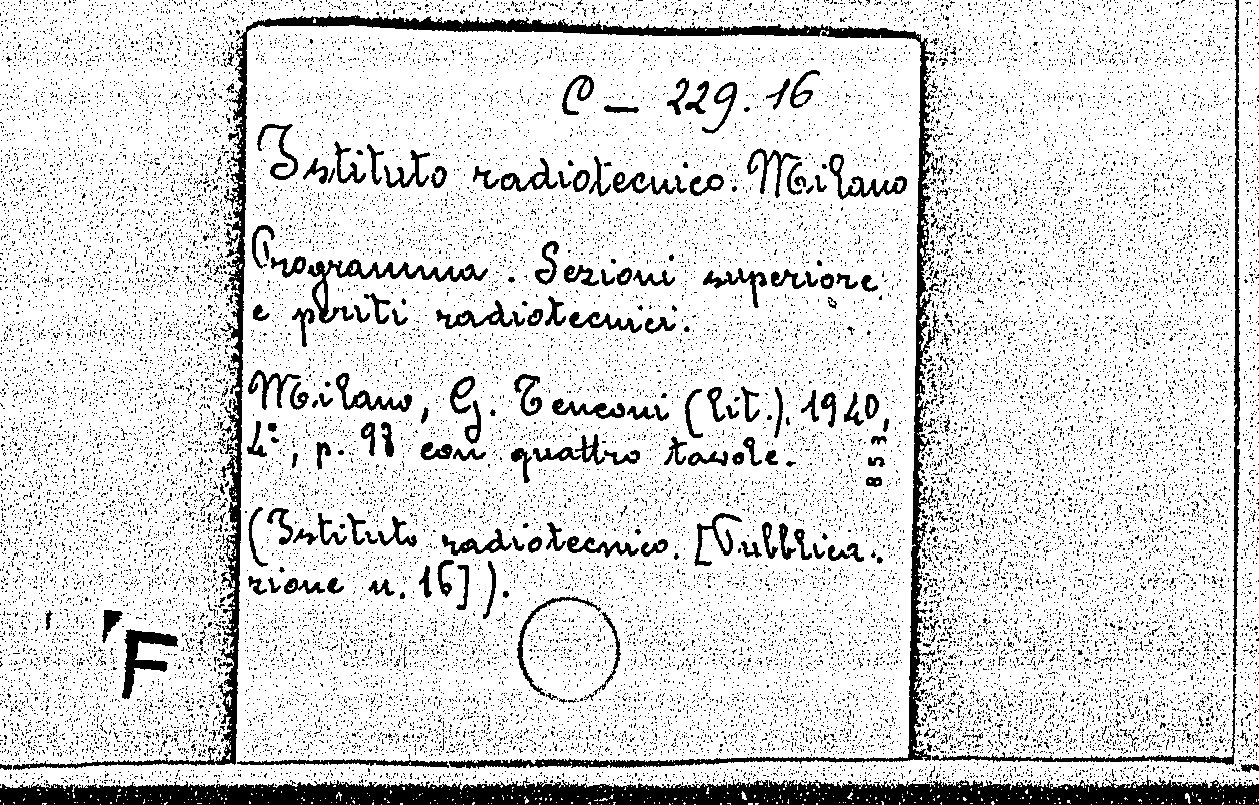 C – 229.16
Istituto radiotecnico. Milano
Programma. Sezioni superiore
e periti radiotecnici.
Milano, G. Tenconi (lit.). 1940,
4°, p. 98 con quattro tavole.
853
(Istituto radiotecnico. [Pubblica.
zione n. 16]).
F